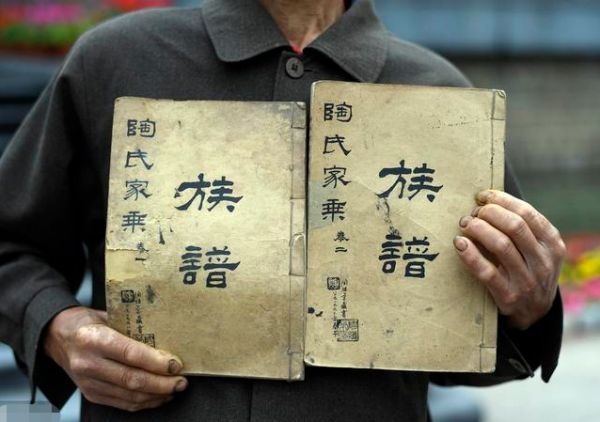 陶氏家乘 卷一
族譜
陶氏家乘 卷二
族譜